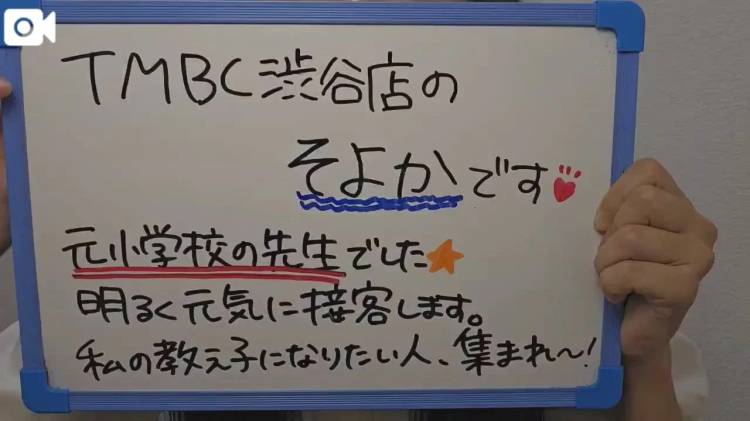 TMBC渋谷店の
そよかです
元小学校の先生でした
明るく元気に接客します。
私の教え子になりたい人、集まれ〜!